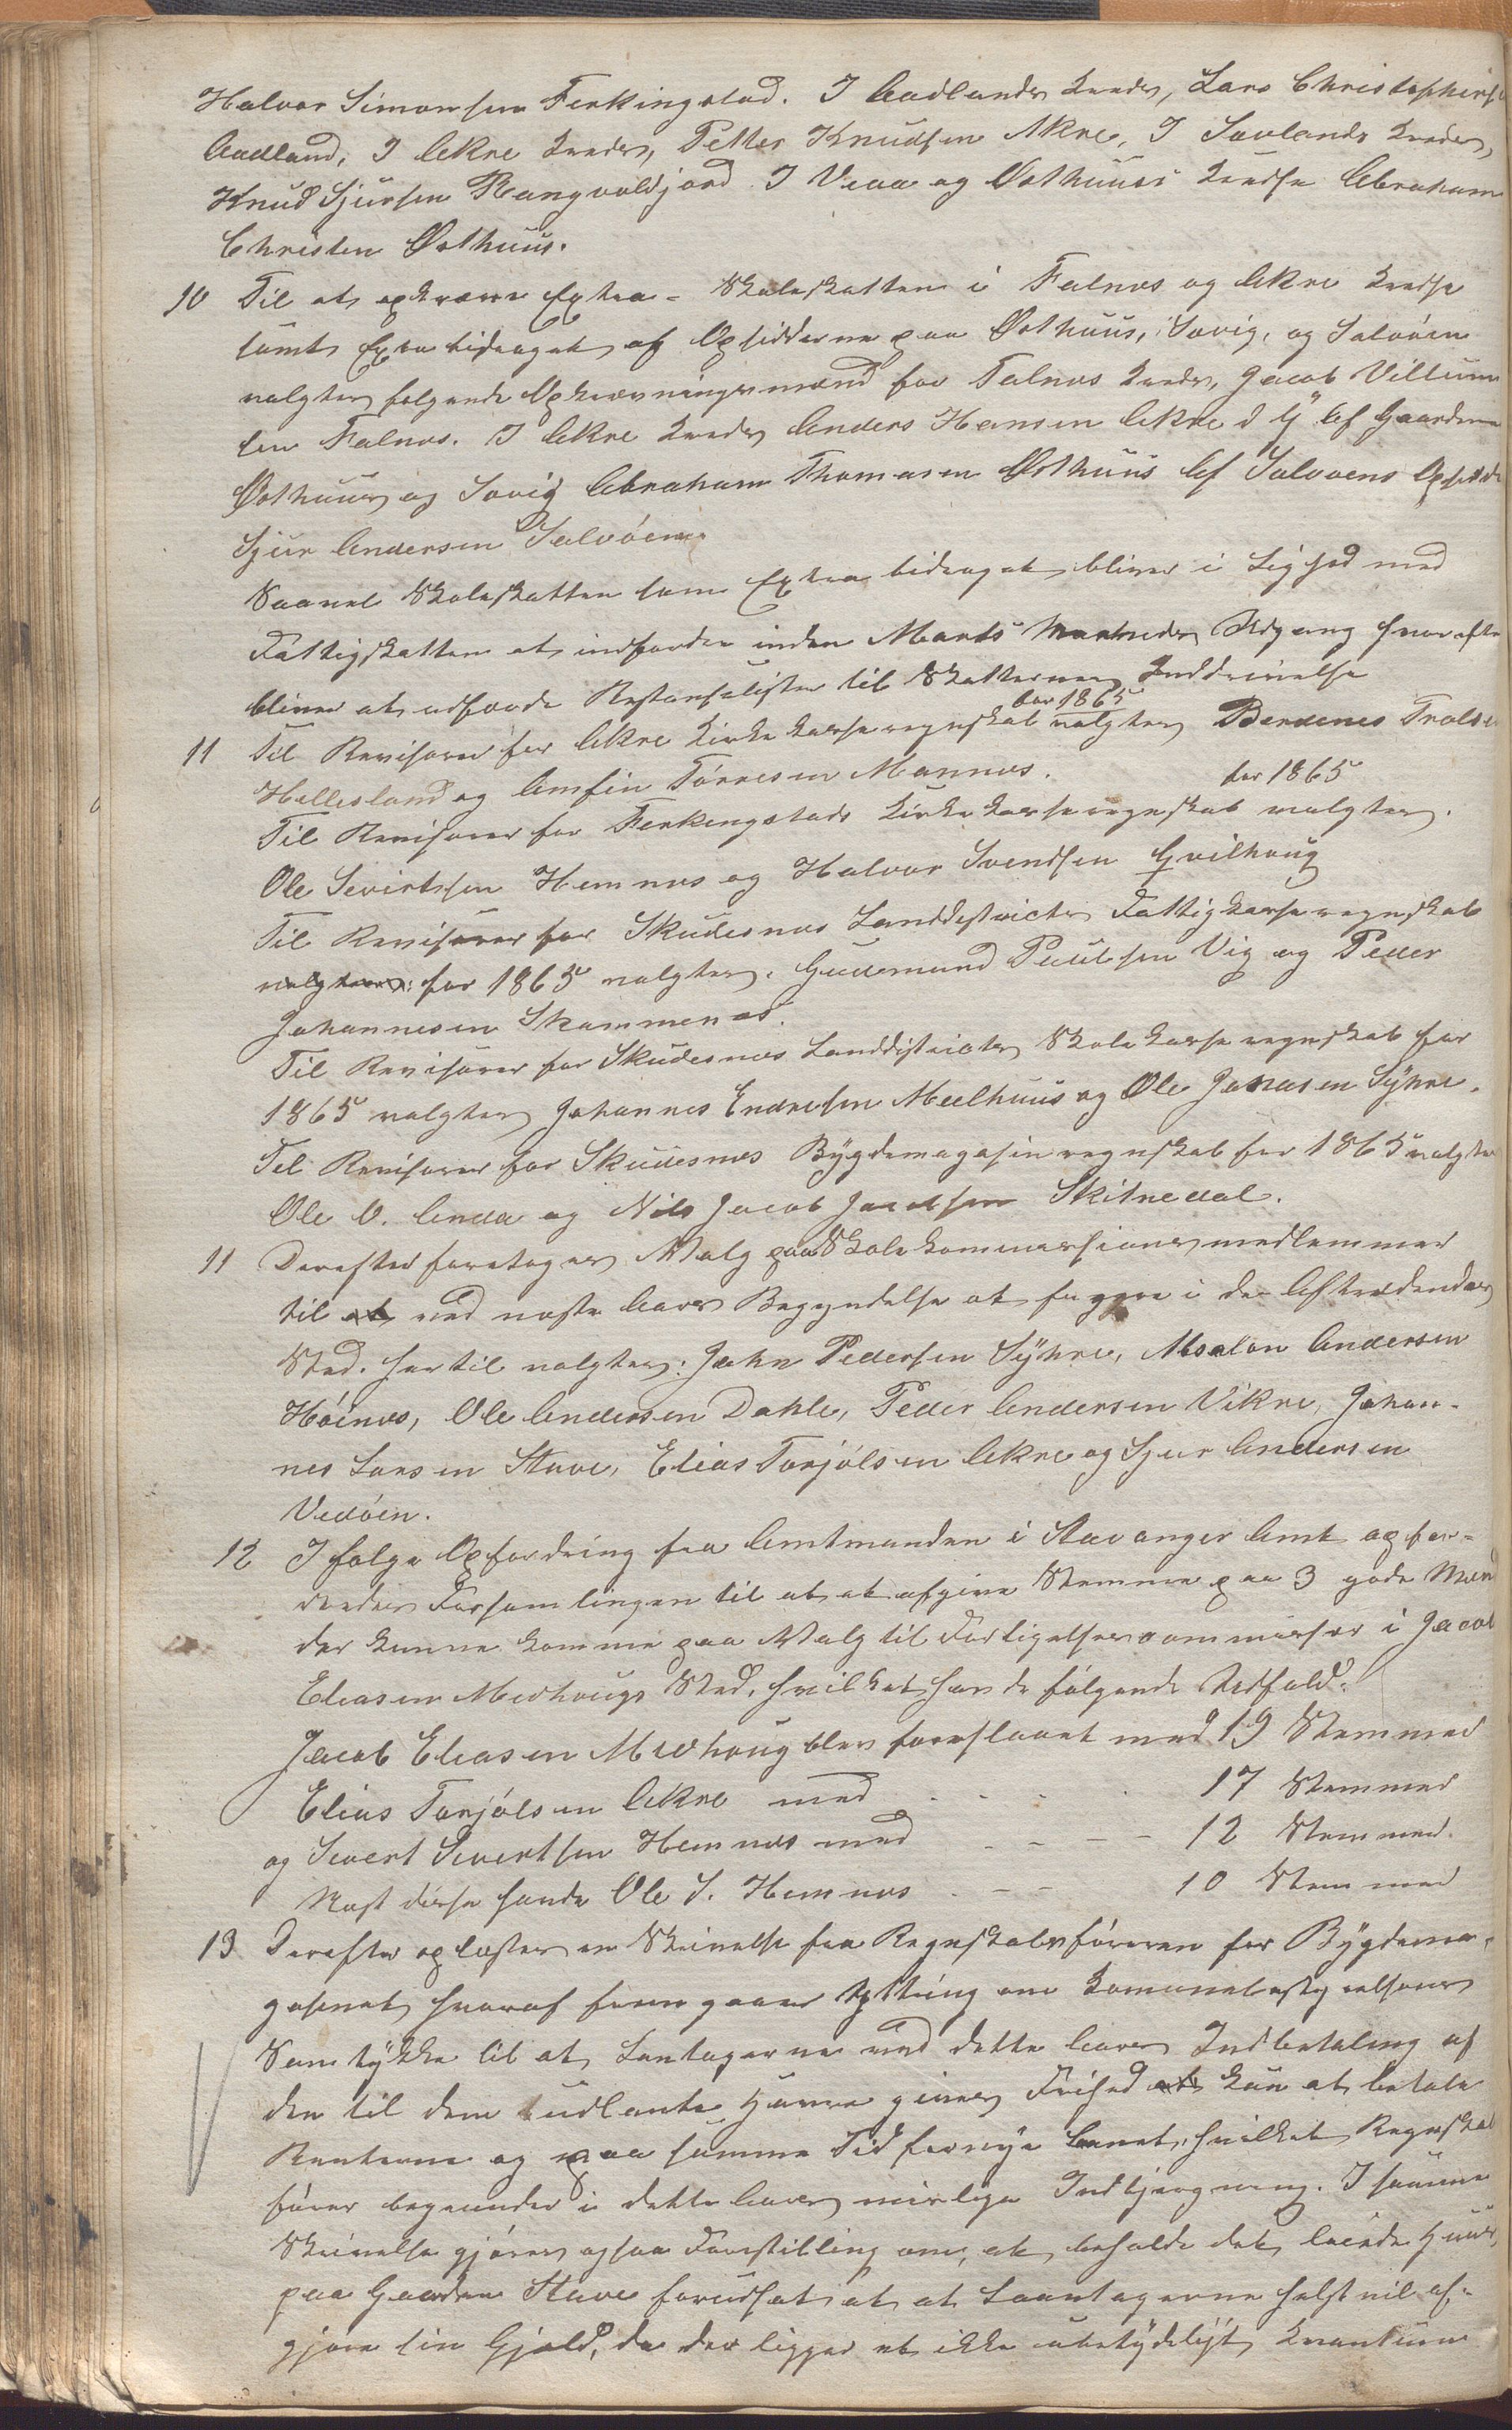 Halvor Simonsen Ferkingstad. I Aadlands Kreds, Lars Christophers
Aadland, I Akre Kreds, Petter Knudsen Akre, I Sævlands Kreds,
Knud Sjursen Rangvaldjord. I Veaa og Østhuus Kredse Abraham
Christen Østhuus.
10 Til at opkræve Extra-Skoleskatten i Falnes og Akre Kredse
samt Extrabidraget af Opsidderne paa Østhuus, Sævig, og Salvøen
valgtes følgende Opkrævningsmænd for Falnes Kreds, Jacob Villum
sen Falnes. I Akre Kreds Anders Hansen Akre d y. Af Gaardene
Østhuus og Sævig Abraham Thomasen Østhuus Af Salvøens Opsidde
Sjur Andersen Salvøen
Saavel Skoleskatten som Extrabidraget bliver i Lighed med
Fattigskatten at indfordre inden Marts Maaneds Udgang hvorefter
bliver at udfærde Restanselister til Skatternes Inddrivelse
11 Til Revisorer for Akre Kirkekasseregnskab for 1865 valgtes Berdenes Trols
Hellesland og Amfin Tørresen Mannes.
Til Revisorer for Ferkingstads Kirkekasseregnskab for 1865 valgtes.
Ole Sevirtsen Hemnes og Halvor Svendsen Qvilhoug
Til Revisorer for Skudesnes Landdistricts Fattigkasseregnskab
valgtes: for 1865 valgtes. Gudemund Paulsen Vig og Peder
Johannesen Stammenæs.
Til Revisorer for Skudesnes Landdistricts Skolekasseregnskab for
1865 valgtes Johannes Endresen Meelhuus og Ole Jonasen Syhre.
Til Revisorer for Skudesnes Bygdemagasinregnskab for 1865 valgtes
Ole O. Anda og Nils Jacob Jacobsen Skitnedal.
11 Derefter foretoges Valg paa Skolekommissionsmedlemmer
til at ved næste Aars Begyndelse at fungere i de Aftrædendes
Sted. hertil valgtes: John Pedersen Syhre, Absalon Andersen
Høines, Ole Andersen Dahle, Peder Andersen Vikre, Johan-
nes Larsen Stave, Elias Torjølsen Akre og Sjur Andersen
Vedøen.
12 I følge Opfordring fra Amtmanden i Stavanger Amt opfor-
dredes Forsamlingen til at at afgive Stemme paa 3 gode Mænd
der kunne komme paa Valg til Forligelseskommissær i Jacob
Eliasen Medhougs Sted, hvilket havde følgende Udfald.
Jacob Eliasen Medhoug blev foreslaaet med 19 Stemmer
Elias Torjølsen Akre med . . . . 17 Stemmer
og Sivert Sivertsen Hemnes med - - - - 12 Stemmer.
Næst disse havde Ole S. Hemnes . - - 10 Stemmer
13 Derefter oplæstes en Skrivelse fra Regnskabsføreren for Bygdema-
gasinet, hvoraf fremgaaer Yttring om Komunebestyrelsens
Samtykke til at Lantagerne ved dette Aars Indbetaling af
den til dem udlaante Havre gives Frihed at kun at betale
Renterne og paa samme Tid fornye Laanet, hvilket Regnskab
fører begrunder i dette Aars misslige Indbjergning. I samme
Skrivelse gjøres ogsaa Forestilling om, at beholde det leiede Huus
paa Gaarden Stave forudsat at at Laantagerne helst vil af-
gjøre sin Gjæld, da der ligger et ikke ubetydeligt Kvantum